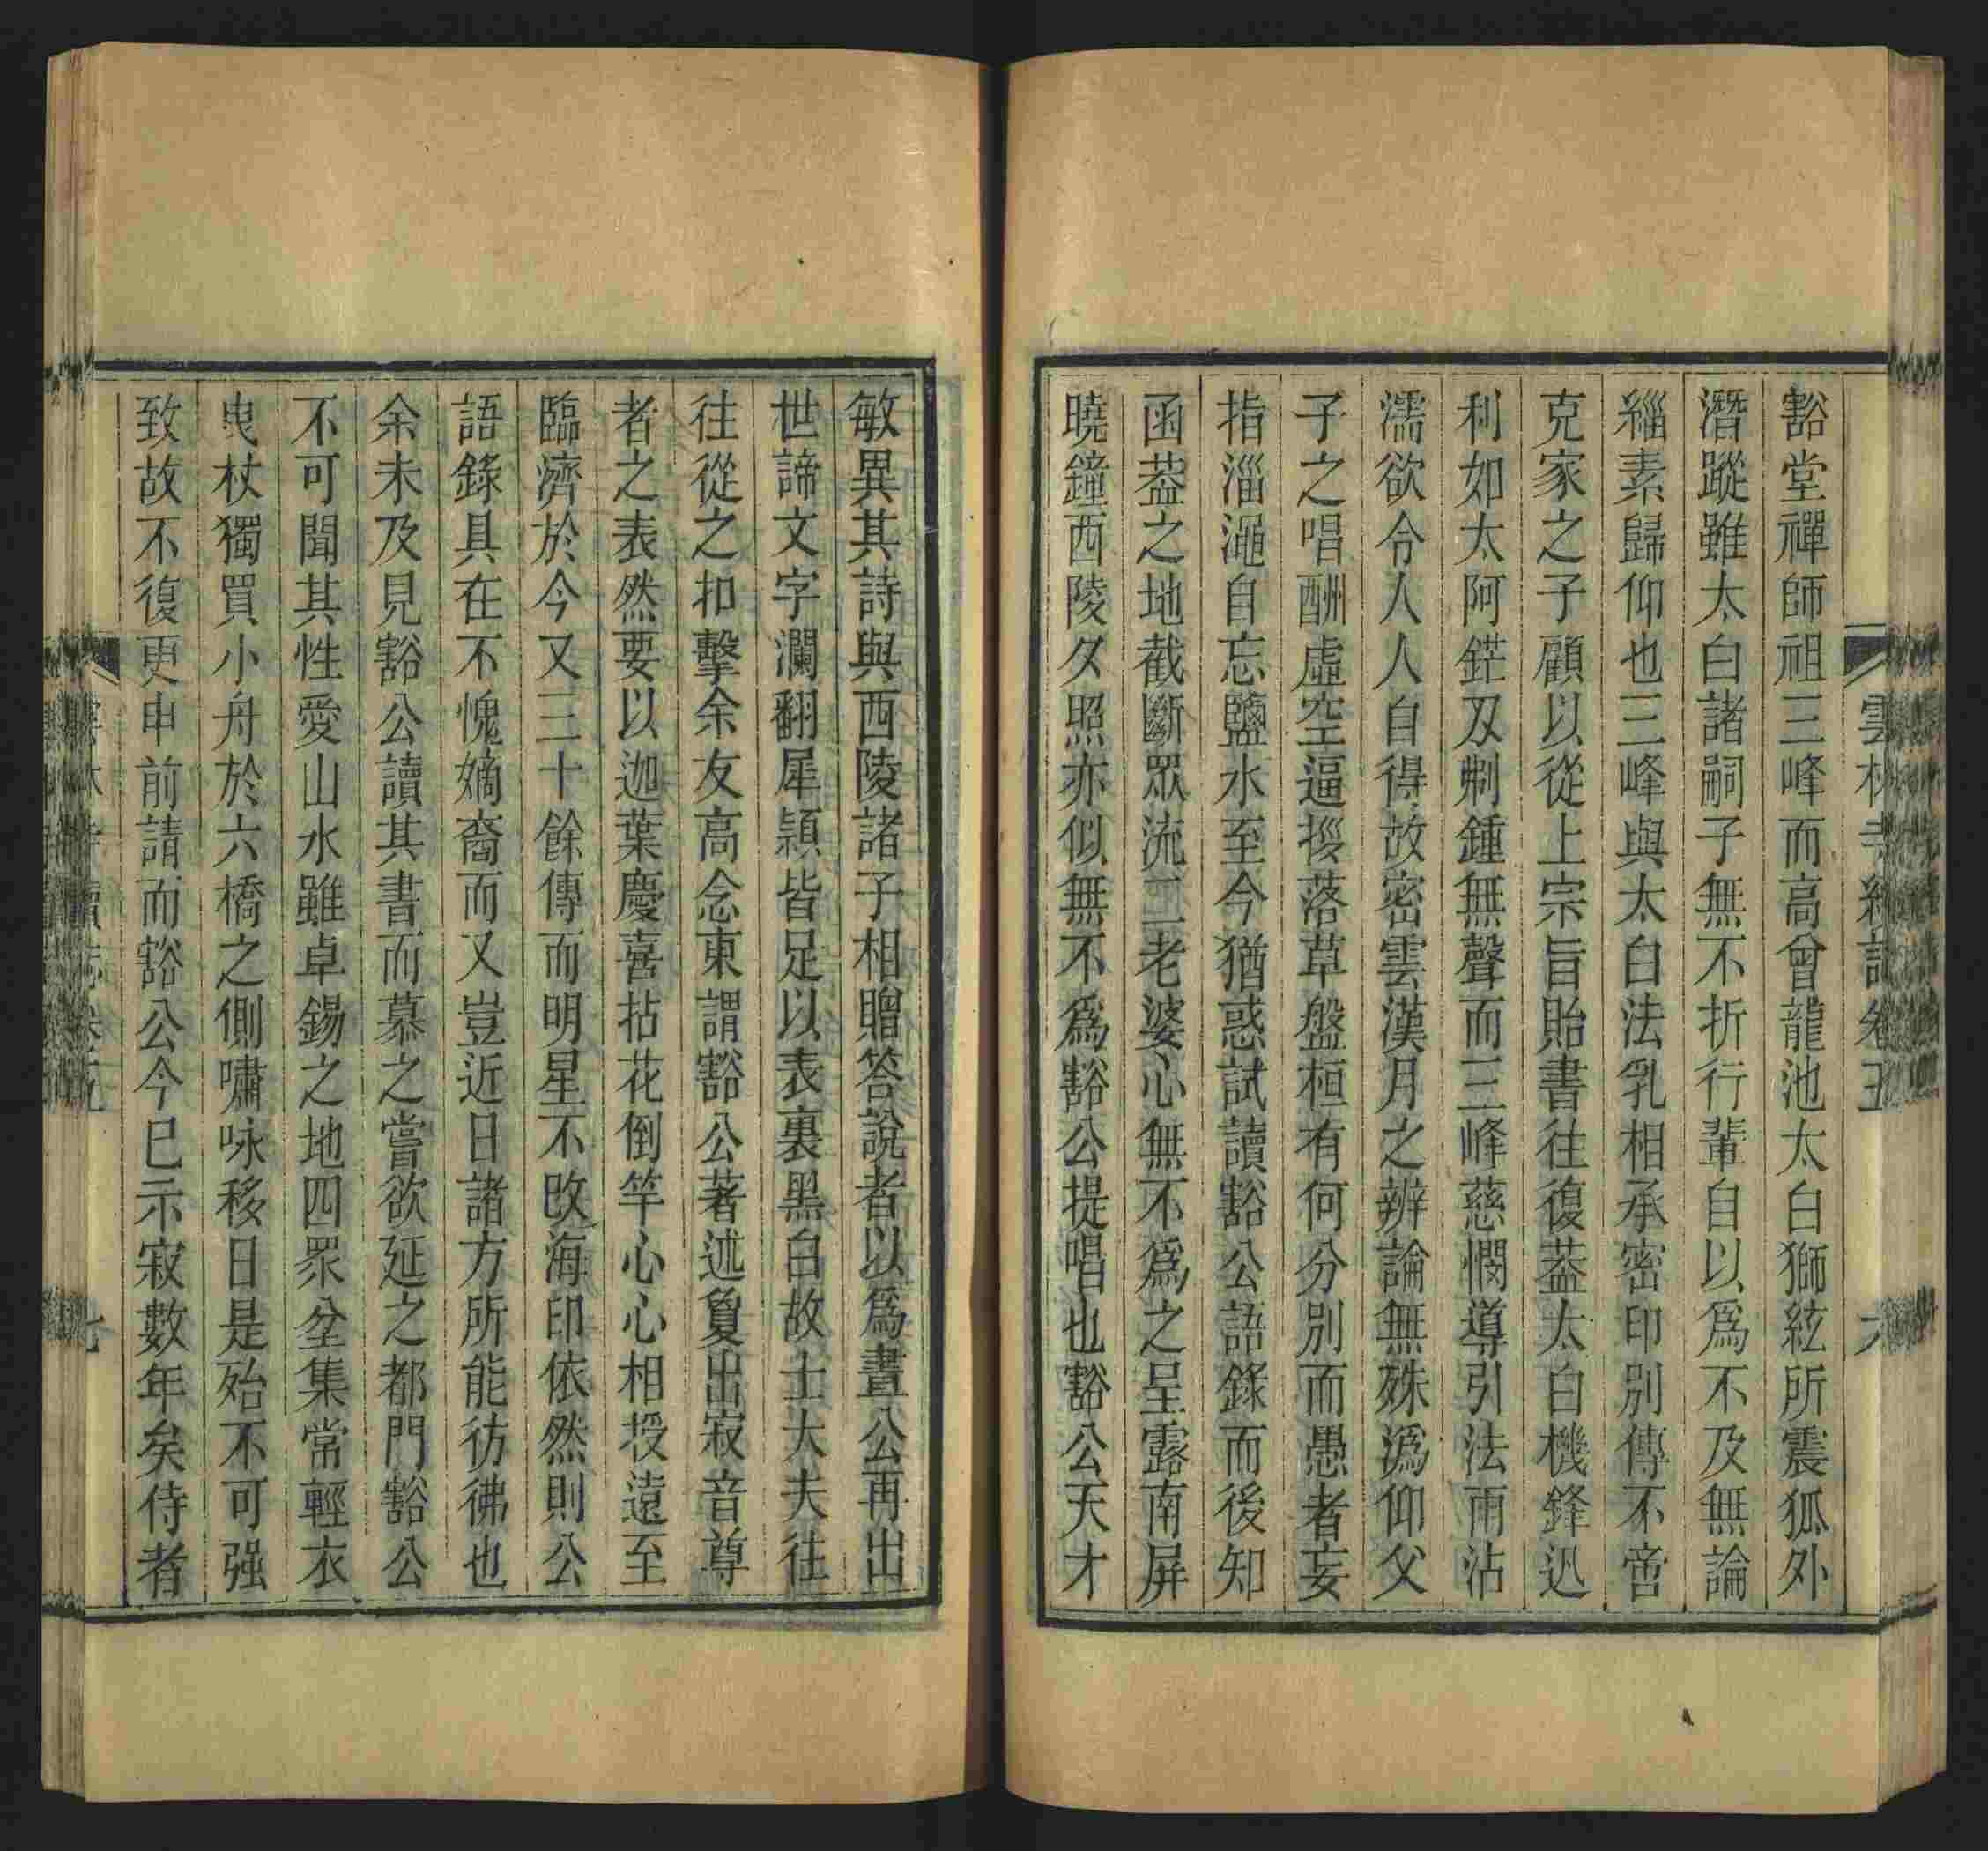 雲林寺續志卷五 六
豁堂禪師祖三峰而高曾龍池太白獅絃所震狐外
潛蹤雖太白諸嗣子無不折行輩自以爲不及無論
緇素歸仰也三峰與太白法乳相承密印別傳不啻
克家之子顧以從上宗旨貽書往復葢太白機鋒迅
利如太阿鋩刄剸鍾無聲而三峰慈憫導引法雨沾
濡欲令人人自得故密雲漢月之辨論無殊潙仰父
子之唱酬虛空逼拶落草盤桓有何分別而愚者妄
指淄澠自忘鹽水至今猶惑試讀豁公語錄而後知
函葢之地截斷眾流二老婆心無不爲之呈露南屏
曉鐘西陵夕照亦似無不爲豁公提唱也豁公天才
敏異其詩與西陵諸子相贈答說者以爲晝公再出
世諦文字瀾翻犀穎皆足以表裏黑白故士大夫往
往從之扣擊余友高念東謂豁公著述敻出寂音尊
者之表然要以迦葉慶喜拈花倒竿心心相授遠至
臨濟於今又三十餘傳而明星不改海印依然則公
語錄具在不愧嫡裔而又豈近日諸方所能彷彿也
余未及見豁公讀其書而慕之嘗欲延之都門豁公
不可聞其性愛山水雖卓錫之地四眾坌集常輕衣
曳杖獨買小舟於六橋之側嘯咏移日是殆不可强
致故不復更申前請而豁公今已示寂數年矣侍者
雲林寺續志卷五 七